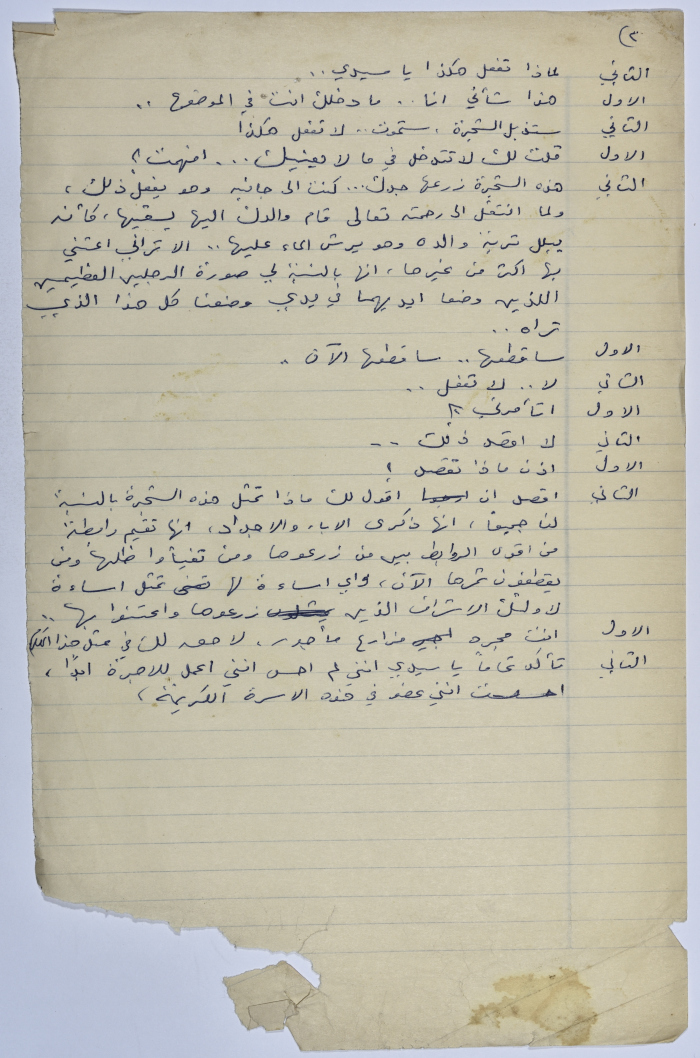 (٣
الثاني لماذا تفعل هكذا يا سيدي ..
الاول هذا شأني انا .. ما دخلك انت في الموضوع ..
الثاني ستذبل الشجرة ، ستموت .. لا تفعل هكذا
الاول قلت لك لا تتدخل في ما لا يعنيك ... افهمت ؟!
الثاني هذه الشجرة زرعها جدك ... كنت الى جانبه وهو يفعل ذلك ،
ولما انتقل الى رحمته تعالى قام والدك اليها يسقيها ، كأنه
يبلل تربة والده وهو يرش الماء عليها .. الا تراني اعتني
بها اكثر من غيرها ، انها بالنسبة لي صورة الرجلين العظيمين
اللذين وضعا ايديهما في يدي وصنعنا كل هذا الذي
تراه ..
الاول ساقطعها .. ساقطعها الآن ..
الثاني لا .. لا تفعل ..
الاول اتأمرني ؟!
الثاني لا اقصد ذلك ..
الاول اذن ماذا تقصد ؟
الثاني اقصد ان اقول لك ماذا تمثل هذه الشجرة بالنسبة
لنا جميعاً ، انها ذكرى الاباء والاجداد ، انها تقيم رابطة
من اقوى الروابط بين من زرعوها ومن تفيأوا ظلها ومن
يقطفون ثمرها الآن ، واي اساءة لها تمثل اساءة
لاولئك الاشراف الذين زرعوها واعتنوا بها ..
الاول انت مجرد مزارع مأجور ، لا حق لك في مثل هذا الكلام
الثاني تأكد تماماً يا سيدي انني لم احس انني اعمل للاجرة ابداً ،
احسست انني عضو في هذه الاسرة الكريمة ،